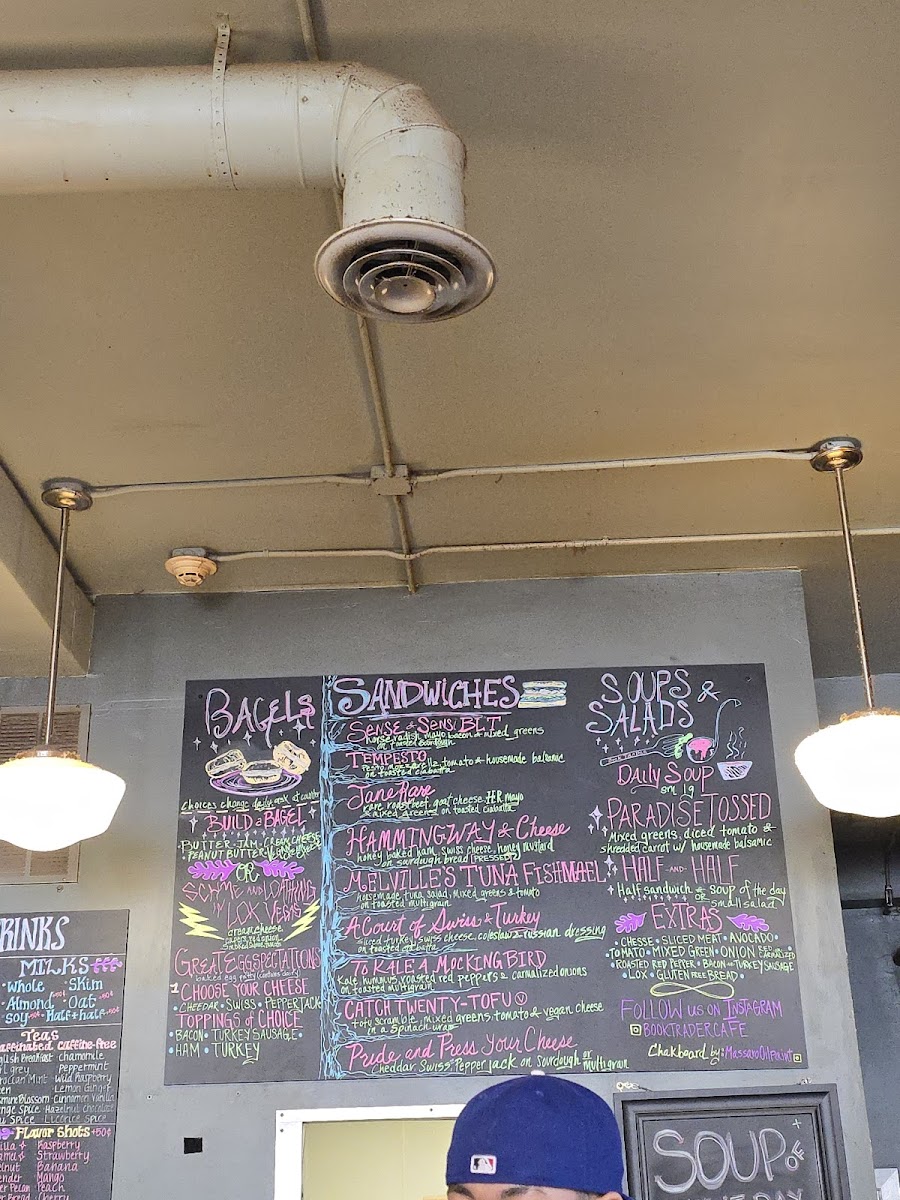 BAGELS
choices change daily, ask at counter
BUILD a BAGEL
BUTTER · JAM · CREAM CHEESE
PEANUT BUTTER
OR
SCHMEAR AND LOATHING
IN LOX VEGAS
cream cheese
capers, red onion
GREAT EGGSPECTATIONS
baked egg patty (contains dairy)
1 CHOOSE YOUR CHEESE
· CHEDAR · SWISS · PEPPERJACK
TOPPINGS of CHOICE
· BACON · TURKEY SAUSAGE ·
· HAM · TURKEY
SANDWiCHES
SENSE & SENSiBLT
horseradish mayo, bacon & mixed greens
on toasted sourdough
TEMPESTO
Pesto, mozzarella, tomato & housemade balsamic
on toasted ciabatta
Jane Rare
rare roastbeef, goat cheese, H.R mayo
& mixed greens on toasted ciabatta
HAMMiNGWAY & Cheese
honey baked ham, swiss cheese, honey mustard
on sourdough bread [PRESSED]
MELVILLE'S TUNA FiSHMAEL
housemade tuna salad, mixed greens & tomato
on toasted multigrain
A Court of Swiss & Turkey
sliced turkey, swiss cheese, coleslaw & russian dressing
on toasted ciabatta
To KALE A MOCKING BIRD
kale, hummus, roasted red peppers & carmalized onions
on toasted multigrain
CATCH TWENTY-TOFU Ⓥ
tofu scramble, mixed greens, tomato & vegan cheese
in a spinach wrap
Pride and Press Your Cheese
cheddar, Swiss, Pepper jack on sourdough or multigrain
SOUPS &
SALADS
DAiLy SOUP
sm lg
PARADiSE TOSSED
Mixed greens, diced tomato &
shredded carrot w/ housemade balsamic
HALF AND HALF
Half sandwich & soup of the day
OR small salad
EXTRAS
· CHESSE · SLICED MEAT · AVOCADO ·
· TOMATO · MIXED GREEN · ONION RED OR CARMALIZED
· ROASTED RED PEPPER · BACON OR TURKEY SAUSAGE
· LOX · GLUTEN FREE BREAD ·
FOLLOW us ON INSTAGRAM
BOOKTRADERCAFE
Chalkboard by: MassaroOilpaint
DRINKS
MILKS
· Whole · Skim
· Almond · Oat
· soy · Half & half
Teas
caffinated caffine-free
English Breakfast chamomile
Earl grey Peppermint
Moroccan Mint Wild Raspberry
Green Lemon Ginger
Jasmine Blossom Cinnamon Vanilla
Orange Spice Hazelnut chocolate
Spice Licorice Spice
Flavor Shots +50¢
Vanilla Raspberry
Caramel Strawberry
Hazelnut Banana
Lavender Mango
Butter Pecan Peach
Cherry
SOUP OF